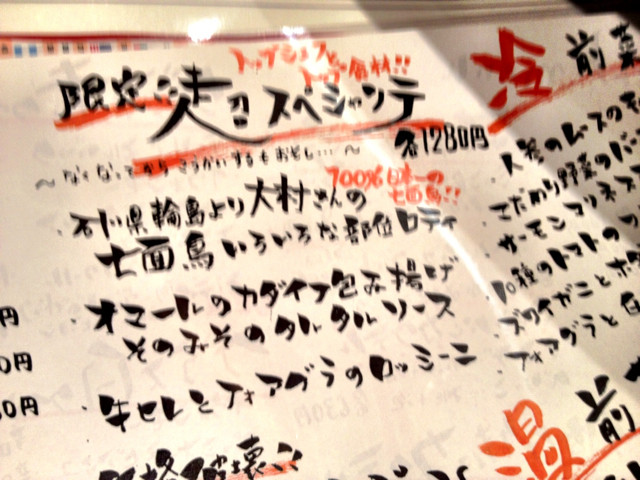 トップシェフと
トップ食材!!
限定 超スペシャリテ
各1280円
～なくなってからこうかいするもおそし…～
100%日本一の
七面鳥!!
・石川県輪島より大村さんの
七面鳥いろいろな部位ロティ
・オマールのカダイフ包み揚げ
そのみそのタルタルソース
・牛セレとフォアグラのロッシーニ
価格破壊
円
0円
50円
冷前菜
・人参のムースの
・こだわり野菜のバ
・サーモンマリネ
・10種のトマトの
・ズワイガニとホタ
・フォアグラと
温前